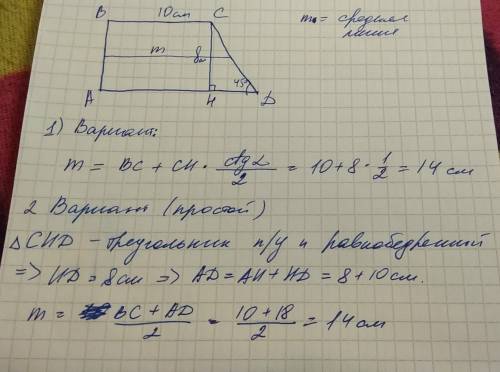 B 10см C
m = средняя
линия
m 8см
45°
A H D
1) Вариант:
m = BC + CH · ctg∠/2 = 10+8 · 1/2 = 14 см
2 Вариант (простой)
△CHD – треугольник п/у и равнобедренный
=> HD = 8см => AD = AH + HD = 8 + 10 см.
m = BC + AD/2 = 10 + 18/2 = 14 см